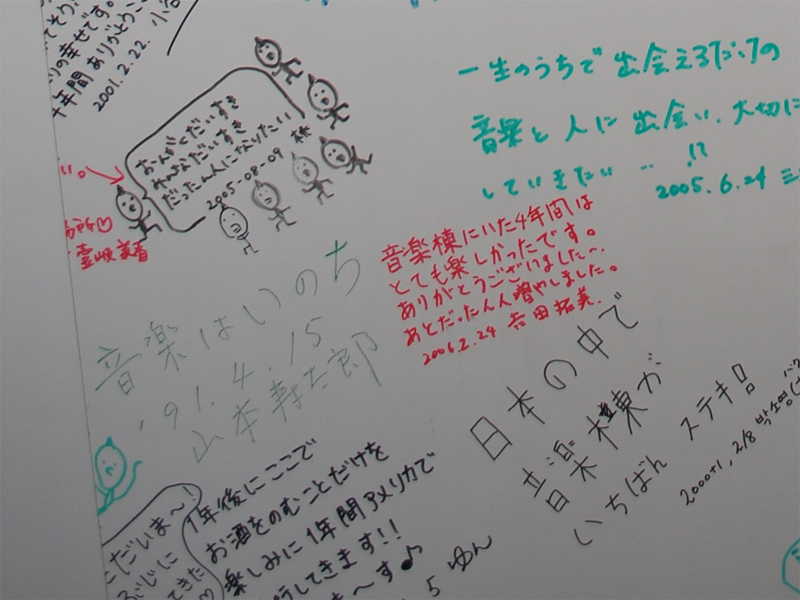 てそう
りの幸せです。
年間ありがとうご
2001.2.22. 小谷
おんがくだいすき
だいすき
だったん人になりたい
2005-08-09 林
い。
一生のうちで 出会えるだけの
音楽と 人に 出会い、大切に
していきたい … !?
2005.6.24
音楽棟にいた4年間は
とても楽しかったです。
ありがとうございました〜.
あとだったん人増やしました。
2006.2.24 吉田拓美.
音楽はいのち
'91.4.15
山本寿太郎
日本の中で
音楽棟が
いちばん ステキ!!
2000+1, 2/8 박소영
ただいま〜!
ぶじに
てきた
1年後にここで
お酒をのむことだけを
楽しみに1年間アメリカで
行してきます!!
ま〜す♪
5 ゆん